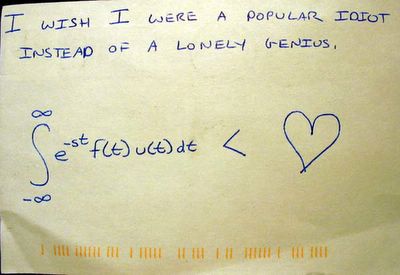 I WISH I WERE A POPULAR IDIOT
INSTEAD OF A LONELY GENIUS.
∞
∫ e^-st f(t) u(t) dt < ♡
-∞